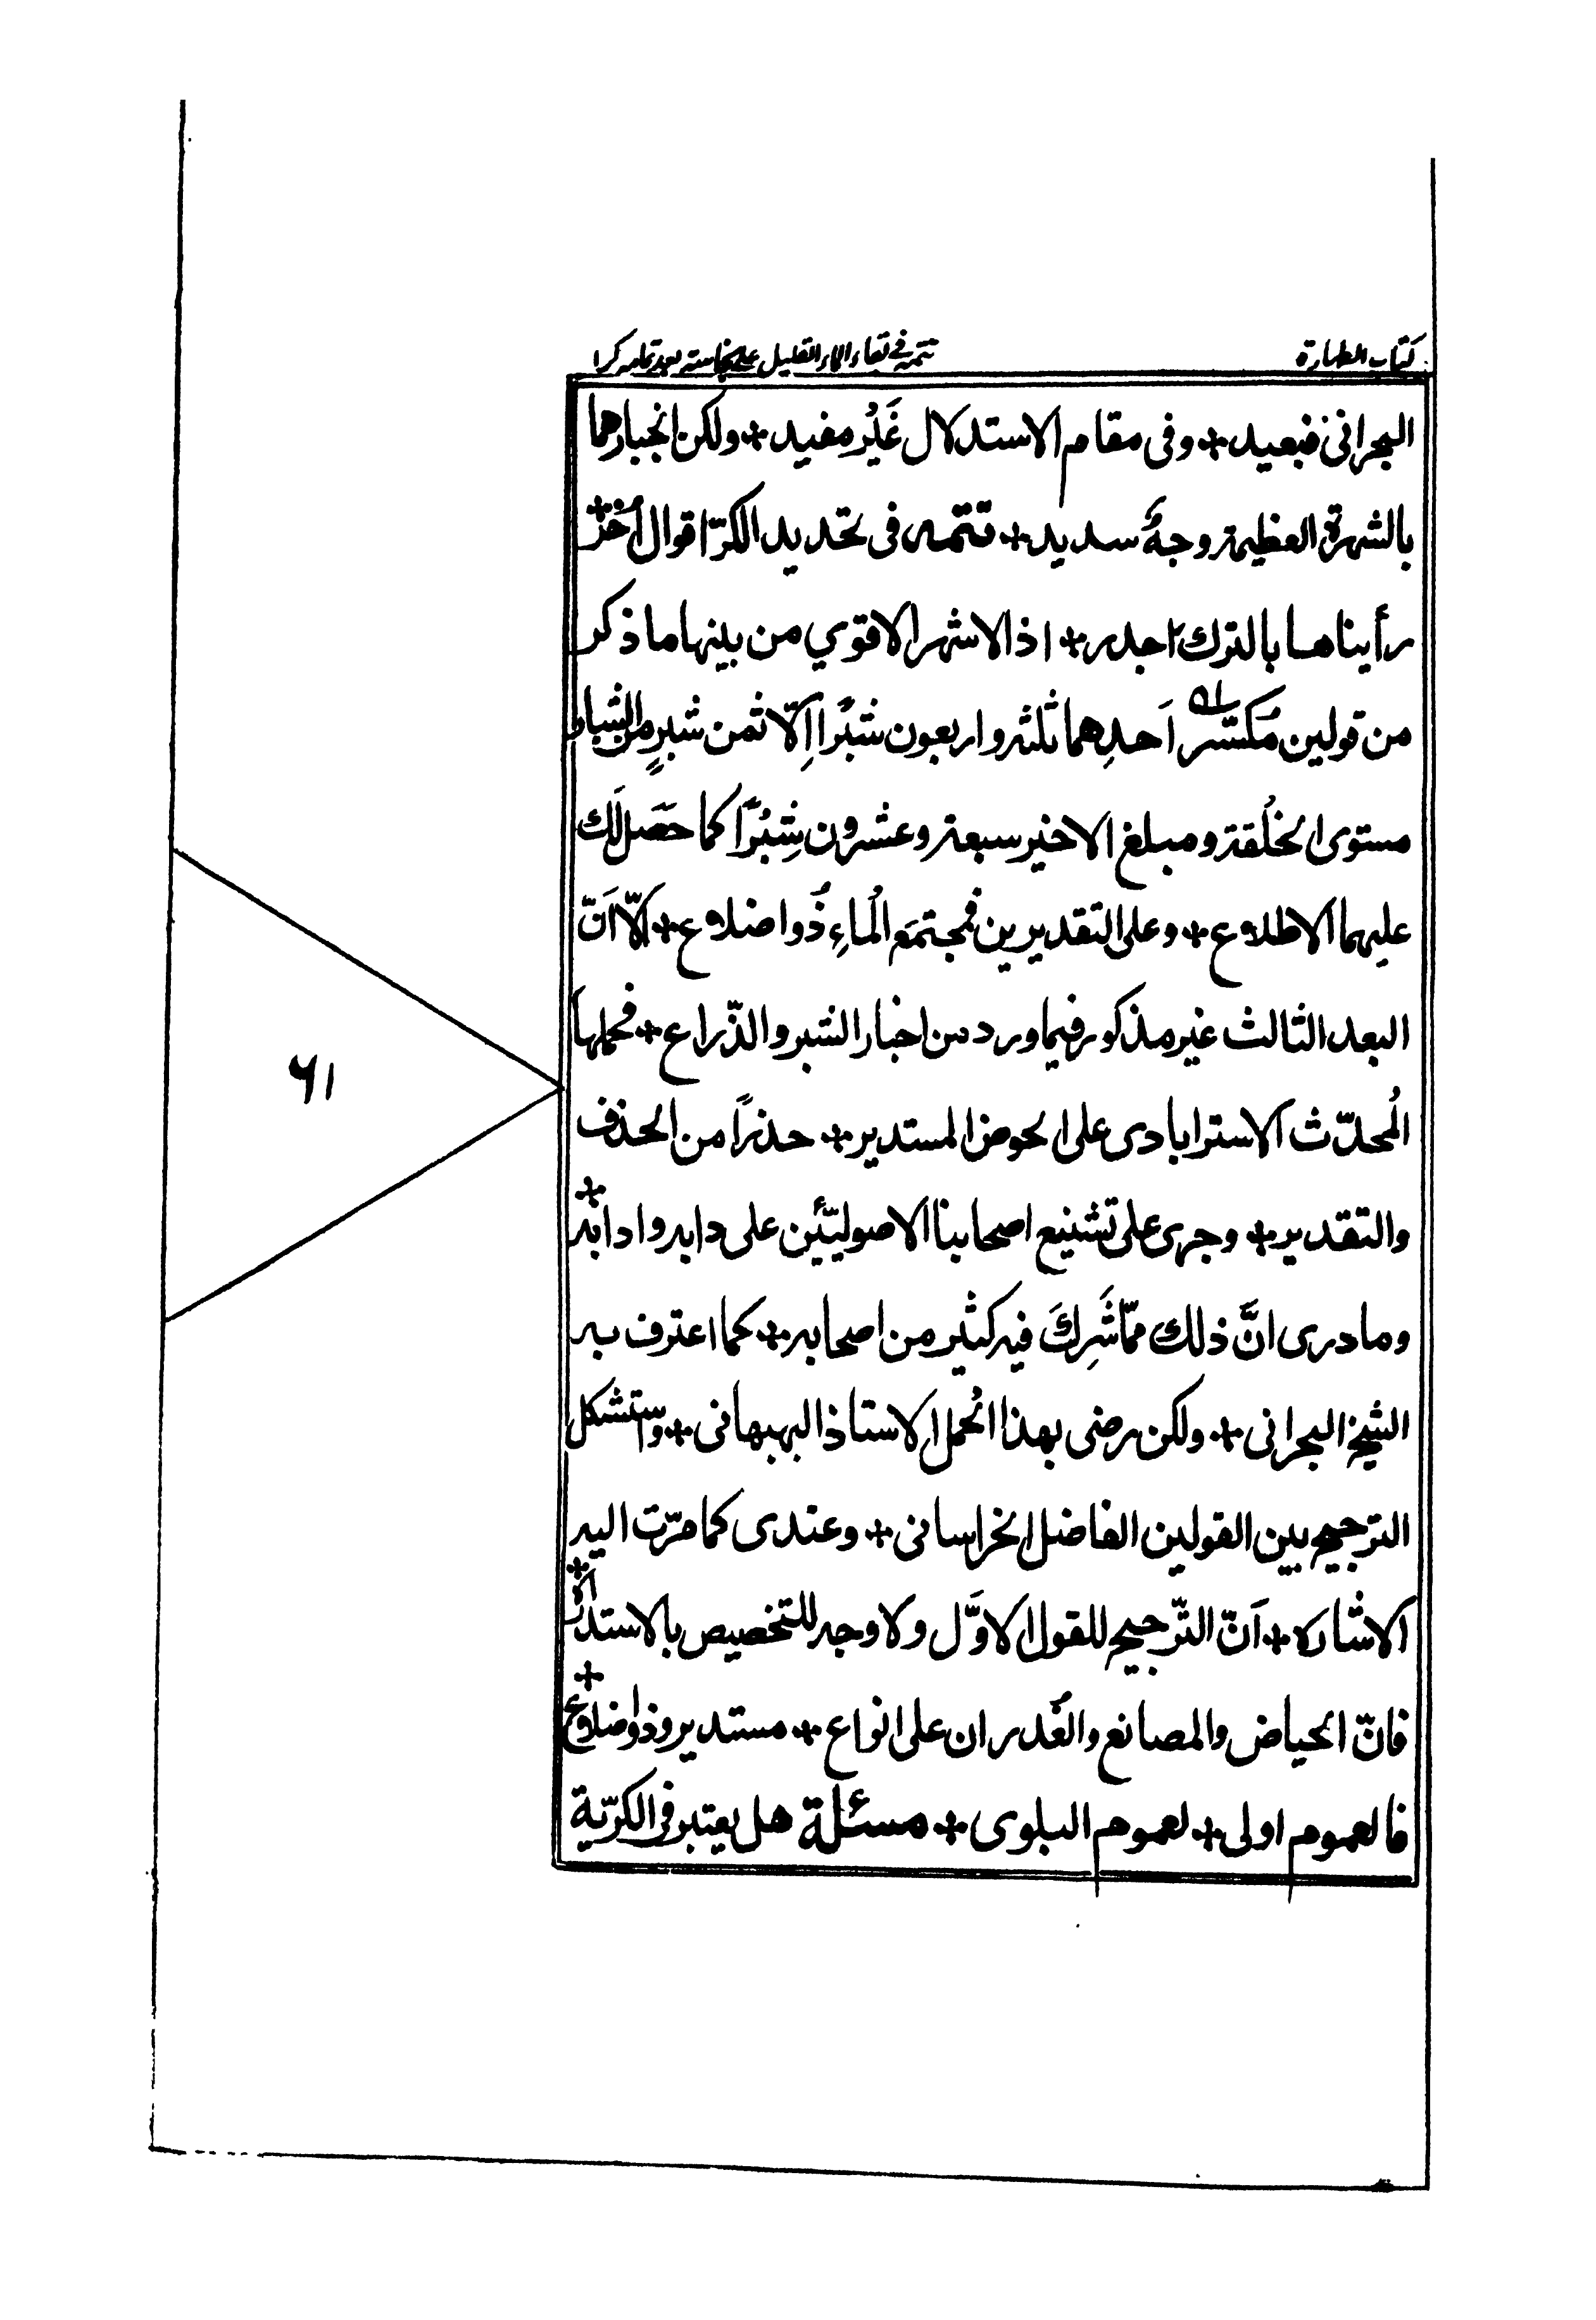 كتاب الطهارة
تتمه فى بقاء الماء القليل على نجاسته بعد تمامه كرا
البحرانى فبعيد + وفى مقام الاستدلال غَيْر مفيد + ولكن انجبارهما
بالشهرة العظيمة وجهٌ سديد + تتمه فى تحديد الكرّ اقوال أُخَر +
رأيناها بالترك اجدر + اذ الاشهر الاقوي من بينها ما ذكر
من قولين مُكسّر احدِهما ثلثة واربعون شبْرا اِلّا ثمن شبرٍ من الشبار
مستوى الخلقة ومبلغ الاخير سبعة وعشرون شِبْرًا كما حَصَل لَك
عليهما الاطلاع + وعلى التقديرين فمجتمَع الْماءِ ذُو اضلاع + الّا اَنّ
البعد الثالث غير مذكور فيما ورد من اخبار الشبر والذّراع + فحملها
الْمحدّث الاسترابادى على الحوض المستدير + حذرًا من الحذف
والتقدير + وجرى على تشنيع اصحابنا الاصوليّين على دابه وادابه +
وما درى انَّ ذلك ممّا شَرِكَ فيه كثير من اصحابه + كما اعترف به
الشيخ البحرانى + ولكن رضى بهذا الْحمل الاستاذ البهبهانى + واستشكل
الترجيح بين القولين الفاضل الخراسانى + وعندى كما مرّت اليه
الاشاره + اَنّ التّرجيح للقول الاوَّل ولا وجه للتخصيص بالاستدارة +
فانّ الحياض والمصانع والغُدران على انواع + مستدير وذو اضلاع +
فالعموم اولى + لعموم البلوى + مسئلة هل يعتبر فى الكرّية
٦١